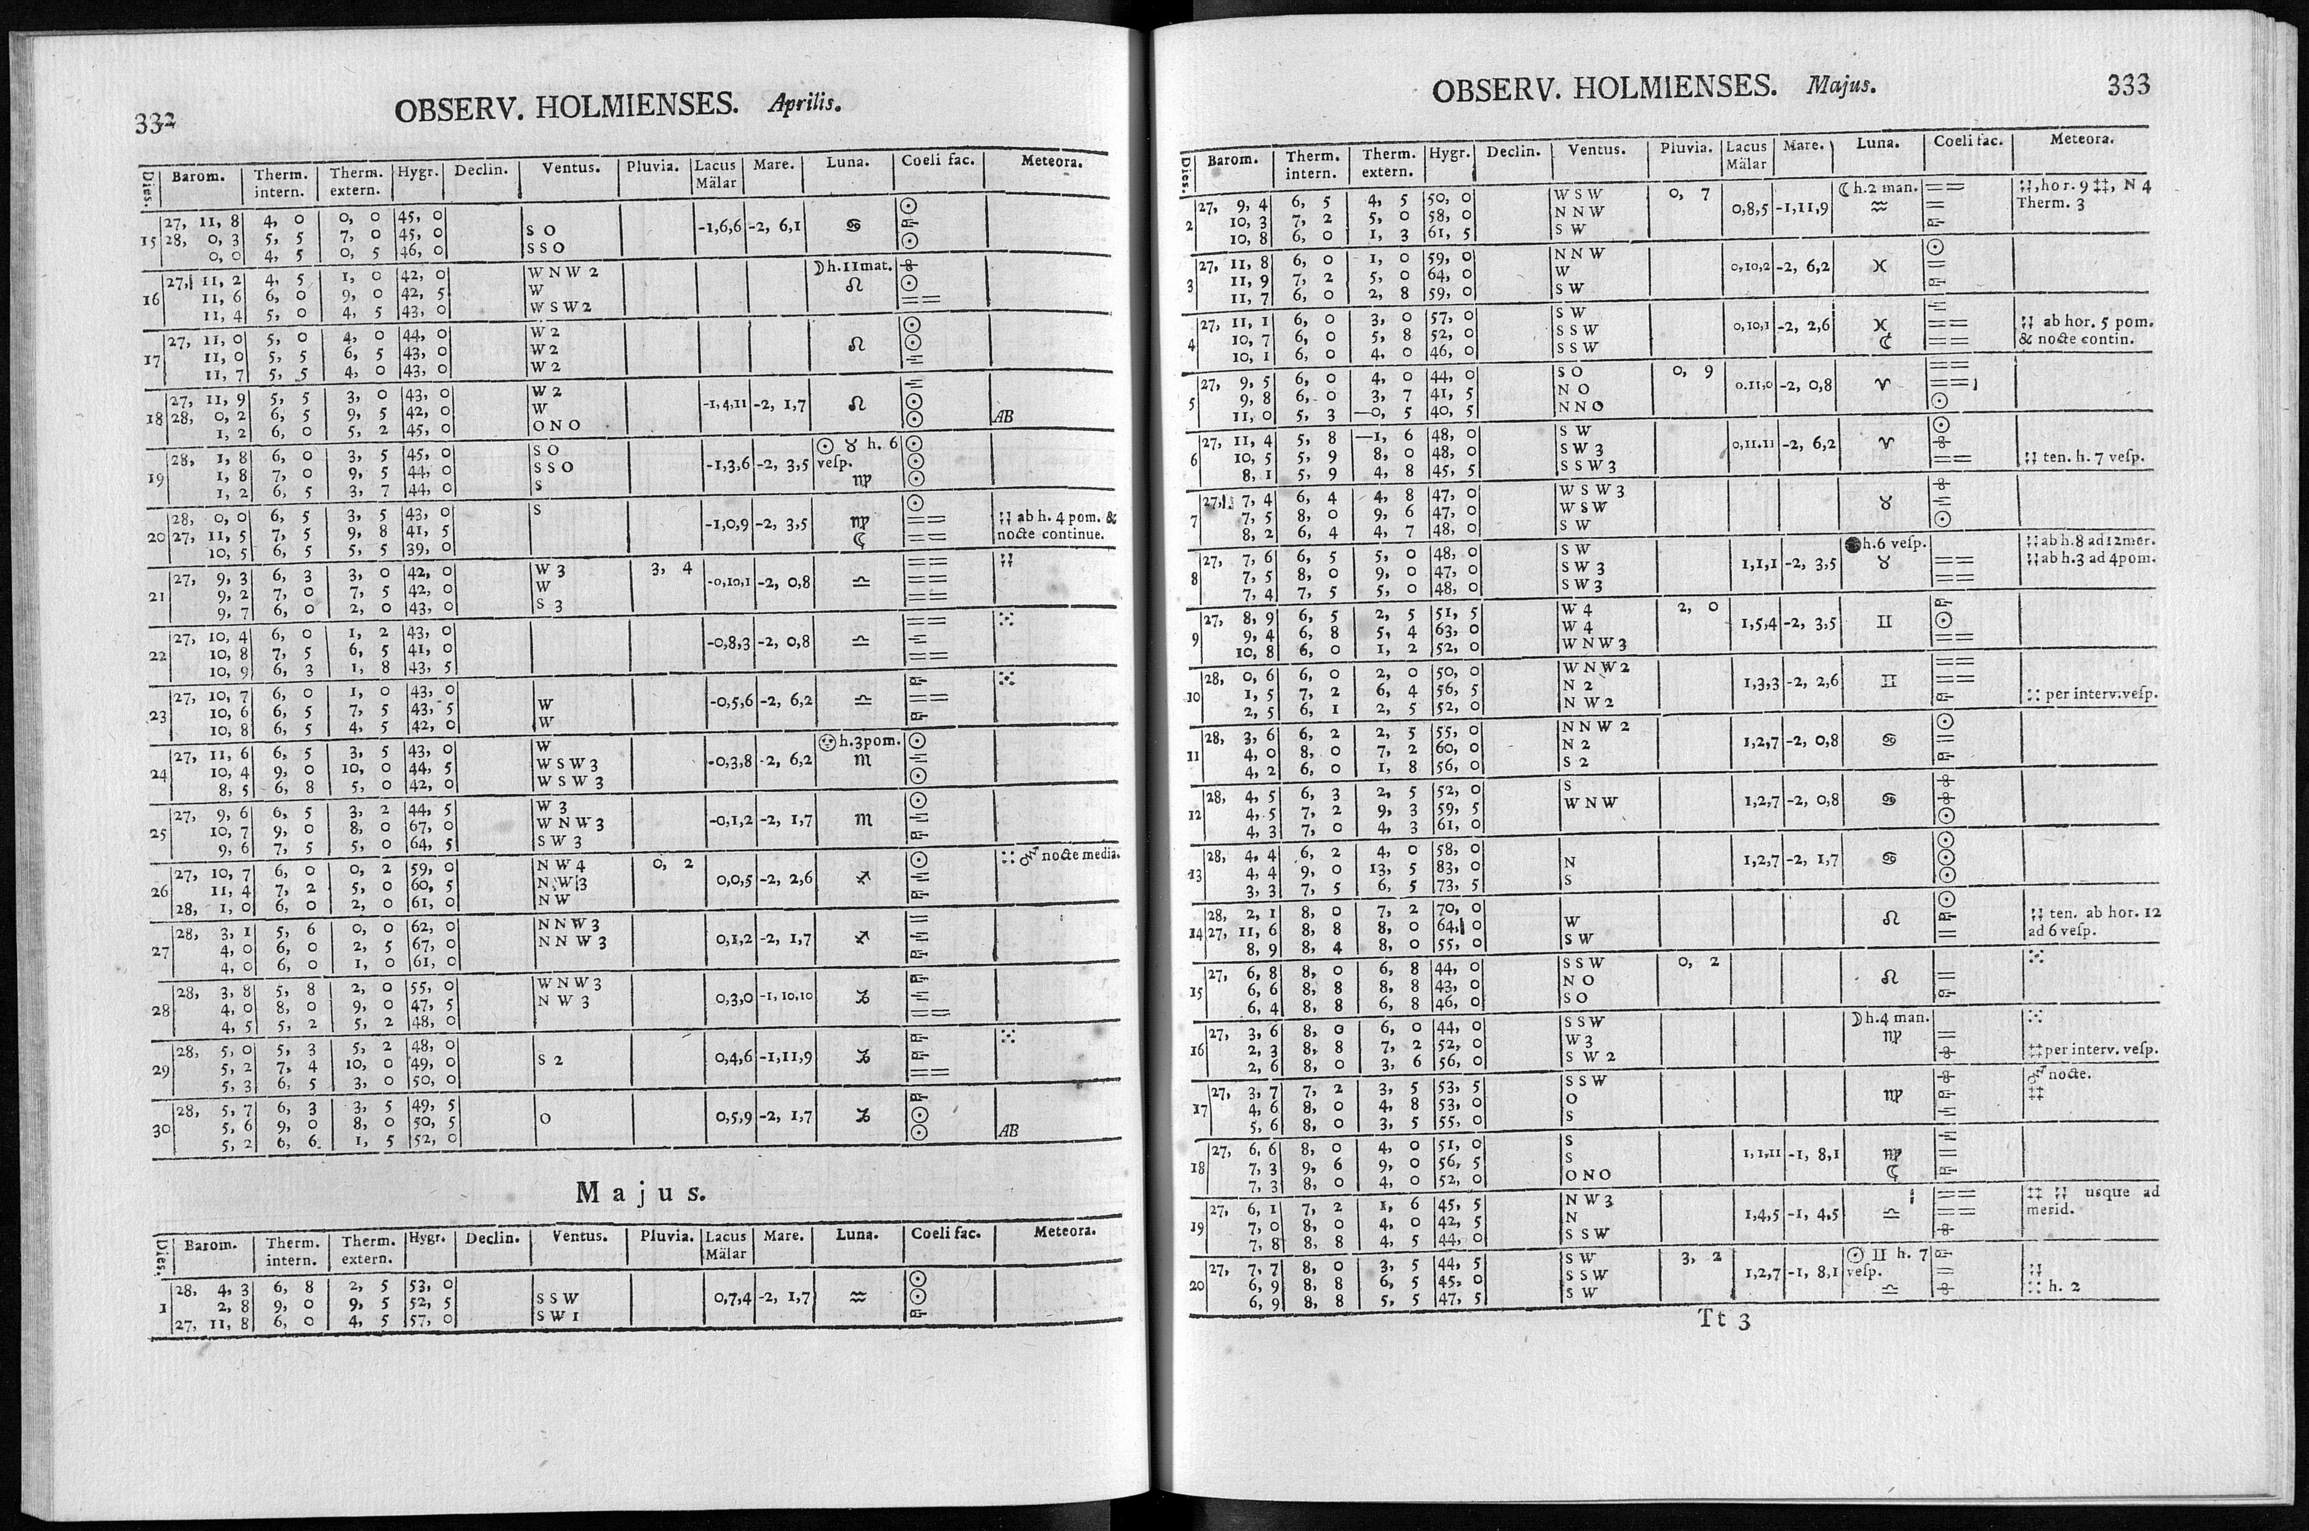 332 OBSERV. HOLMIENSES. Aprilis.
Dies. Barom. Therm. intern. Therm. extern. Hygr. Declin. Ventus. Pluvia. Lacus Mälar Mare. Luna. Coeli fac. Meteora.
27, 11, 8 4, 0 0, 0 45, 0 ☉
15 28, 0, 3 5, 5 7, 0 45, 0 S O -1,6,6 -2, 6,1 ♋
0, 0 4, 5 0, 5 46, 0 S S O ☉
27, 11, 2 4, 5 1, 0 42, 0 W N W 2 ☽ h.11mat.
16 11, 6 6, 0 9, 0 42, 5 W ♌ ☉
11, 4 5, 0 4, 5 43, 0 W S W 2 ==
27, 11, 0 5, 0 4, 0 44, 0 W 2 ☉
17 11, 0 5, 5 6, 5 43, 0 W 2 ♌ ☉
11, 7 5, 5 4, 0 43, 0 W 2
27, 11, 9 5, 5 3, 0 43, 0 W 2
18 28, 0, 2 6, 5 9, 5 42, 0 W -1,4,11 -2, 1,7 ♌ ☉
1, 2 6, 0 5, 2 45, 0 O N O ☉ AB
28, 1, 8 6, 0 3, 5 45, 0 S O ☉ ♉ h. 6 ☉
19 1, 8 7, 0 9, 5 44, 0 S S O -1,3,6 -2, 3,5 vesp. ☉
1, 2 6, 5 3, 7 44, 0 S ♍ ☉
28, 0, 0 6, 5 3, 5 43, 0 S ☉
20 27, 11, 5 7, 5 9, 8 41, 5 -1,0,9 -2, 3,5 ♍ == ab h. 4 pom. &
10, 5 6, 5 5, 5 39, 0 ☾ == nocte continue.
27, 9, 3 6, 3 3, 0 42, 0 W 3 3, 4 ==
21 9, 2 7, 0 7, 5 42, 0 W -0,10,1 -2, 0,8 ♎ ==
9, 7 6, 0 2, 0 43, 0 S 3 ==
27, 10, 4 6, 0 1, 2 43, 0 ==
22 10, 8 7, 5 6, 5 41, 0 -0,8,3 -2, 0,8 ♎
10, 9 6, 3 1, 8 43, 5 ==
27, 10, 7 6, 0 1, 0 43, 0
23 10, 6 6, 5 7, 5 43, 5 W -0,5,6 -2, 6,2 ♎ ==
10, 8 6, 5 4, 5 42, 0 W
27, 11, 6 6, 5 3, 5 43, 0 W h.3pom. ☉
24 10, 4 9, 0 10, 0 44, 5 W S W 3 -0,3,8 -2, 6,2 ♏
8, 5 6, 8 5, 0 42, 0 W S W 3 ☉
27, 9, 6 6, 5 3, 2 44, 5 W 3 ☉
25 10, 7 9, 0 8, 0 67, 0 W N W 3 -0,1,2 -2, 1,7 ♏
9, 6 7, 5 5, 0 64, 5 S W 3
27, 10, 7 6, 0 0, 2 59, 0 N W 4 0, 2 ☉ nocte media.
26 11, 4 7, 2 5, 0 60, 5 N W 3 0,0,5 -2, 2,6 ♐
28, 1, 0 6, 0 2, 0 61, 0 N W
28, 3, 1 5, 6 0, 0 62, 0 N N W 3 =
27 4, 0 6, 0 2, 5 67, 0 N N W 3 0,1,2 -2, 1,7 ♐
4, 0 6, 0 1, 0 61, 0
28, 3, 8 5, 8 2, 0 55, 0 W N W 3
28 4, 0 8, 0 9, 0 47, 5 N W 3 0,3,0 -1, 10,10 ♑
4, 5 5, 2 5, 2 48, 0 ==
28, 5, 0 5, 3 5, 2 48, 0
29 5, 2 7, 4 10, 0 49, 0 S 2 0,4,6 -1,11,9 ♑
5, 3 6, 5 3, 0 50, 0 ==
28, 5, 7 6, 3 3, 5 49, 5
30 5, 6 9, 0 8, 0 50, 5 O 0,5,9 -2, 1,7 ♑ ☉
5, 2 6, 6 1, 5 52, 0 ☉ AB
Majus.
Dies. Barom. Therm. intern. Therm. extern. Hygr. Declin. Ventus. Pluvia. Lacus Mälar Mare. Luna. Coeli fac. Meteora.
28, 4, 3 6, 8 2, 5 53, 0 ☉
1 2, 8 9, 0 9, 5 52, 5 S S W 0,7,4 -2, 1,7 ♒ ☉
27, 11, 8 6, 0 4, 5 57, 0 S W 1
OBSERV. HOLMIENSES. Majus. 333
Dies. Barom. Therm. intern. Therm. extern. Hygr. Declin. Ventus. Pluvia. Lacus Mälar Mare. Luna. Coeli fac. Meteora.
27, 9, 4 6, 5 4, 5 50, 0 W S W 0, 7 ☾ h.2 man. == , hor. 9 ‡‡, N 4
2 10, 3 7, 2 5, 0 58, 0 N N W 0,8,5 -1,11,9 ♒ = Therm. 3
10, 8 6, 0 1, 3 61, 5 S W
27, 11, 8 6, 0 1, 0 59, 0 N N W ☉
3 11, 9 7, 2 5, 0 64, 0 W 0,10,2 -2, 6,2 ♓ =
11, 7 6, 0 2, 8 59, 0 S W
27, 11, 1 6, 0 3, 0 57, 0 S W
4 10, 7 6, 0 5, 8 52, 0 S S W 0,10,1 -2, 2,6 ♓ == ab hor. 5 pom.
10, 1 6, 0 4, 0 46, 0 S S W ☾ == & nocte contin.
27, 9, 5 6, 0 4, 0 44, 0 S O 0, 9 ==
5 9, 8 6, 0 3, 7 41, 5 N O 0.11,0 -2, 0,8 ♈ ==
11, 0 5, 3 —0, 5 40, 5 N N O ☉
27, 11, 4 5, 8 —1, 6 48, 0 S W ☉
6 10, 5 5, 9 8, 0 48, 0 S W 3 0,11.11 -2, 6,2 ♈
8, 1 5, 9 4, 8 45, 5 S S W 3 == ten. h. 7 vesp.
27, 7, 4 6, 4 4, 8 47, 0 W S W 3
7 7, 5 8, 0 9, 6 47, 0 W S W ♉
8, 2 6, 4 4, 7 48, 0 S W ☉
27, 7, 6 6, 5 5, 0 48, 0 S W ● h.6 vesp. ab h.8 ad 12mer.
8 7, 5 8, 0 9, 0 47, 0 S W 3 1,1,1 -2, 3,5 ♉ == ab h.3 ad 4pom.
7, 4 7, 5 5, 0 48, 0 S W 3 ==
27, 8, 9 6, 5 2, 5 51, 5 W 4 2, 0
9 9, 4 6, 8 5, 4 63, 0 W 4 1,5,4 -2, 3,5 ♊ ☉
10, 8 6, 0 1, 2 52, 0 W N W 3 ==
28, 0, 6 6, 0 2, 0 50, 0 W N W 2 ==
10 1, 5 7, 2 6, 4 56, 5 N 2 1,3,3 -2, 2,6 ♊ ==
2, 5 6, 1 2, 5 52, 0 N W 2 per interv. vesp.
28, 3, 6 6, 2 2, 5 55, 0 N N W 2 ☉
11 4, 0 8, 0 7, 2 60, 0 N 2 1,2,7 -2, 0,8 ♋ =
4, 2 6, 0 1, 8 56, 0 S 2
28, 4, 5 6, 3 2, 5 52, 0 S
12 4, 5 7, 2 9, 3 59, 5 W N W 1,2,7 -2, 0,8 ♋
4, 3 7, 0 4, 3 61, 0 ☉
28, 4, 4 6, 2 4, 0 58, 0 ☉
13 4, 4 9, 0 13, 5 83, 0 N 1,2,7 -2, 1,7 ♋ ☉
3, 3 7, 5 6, 5 73, 5 S ☉
28, 2, 1 8, 0 7, 2 70, 0 ☉
14 27, 11, 6 8, 8 8, 0 64, 0 W ♌ ten. ab hor. 12
8, 9 8, 4 8, 0 55, 0 S W = ad 6 vesp.
27, 6, 8 8, 0 6, 8 44, 0 S S W 0, 2
15 6, 6 8, 8 8, 8 43, 0 N O ♌ =
6, 4 8, 8 6, 8 46, 0 S O
27, 3, 6 8, 0 6, 0 44, 0 S S W ☽ h.4 man.
16 2, 3 8, 8 7, 2 52, 0 W 3 ♍ =
2, 6 8, 0 3, 6 56, 0 S W 2 ‡‡ per interv. vesp.
27, 3, 7 7, 2 3, 5 53, 5 S S W nocte.
17 4, 6 8, 0 4, 8 53, 0 O ♍ ‡‡
5, 6 8, 0 3, 5 55, 0 S
27, 6, 6 8, 0 4, 0 51, 0 S
18 7, 3 9, 6 9, 0 56, 5 S 1,1,11 -1, 8,1 ♍ =
7, 3 8, 0 4, 0 52, 0 O N O ☾
27, 6, 1 7, 2 1, 6 45, 5 N W 3 == ‡‡ usque ad
19 7, 0 8, 0 4, 0 42, 5 N 1,4,5 -1, 4,5 ♎ == merid.
7, 8 8, 8 4, 5 44, 0 S S W
27, 7, 7 8, 0 3, 5 44, 5 S W 3, 2 ☉ ♊ h. 7
20 6, 9 8, 8 6, 5 45, 0 S S W 1,2,7 -1, 8,1 vesp. =
6, 9 8, 8 5, 5 47, 5 S W ♎ h. 2
Tt 3